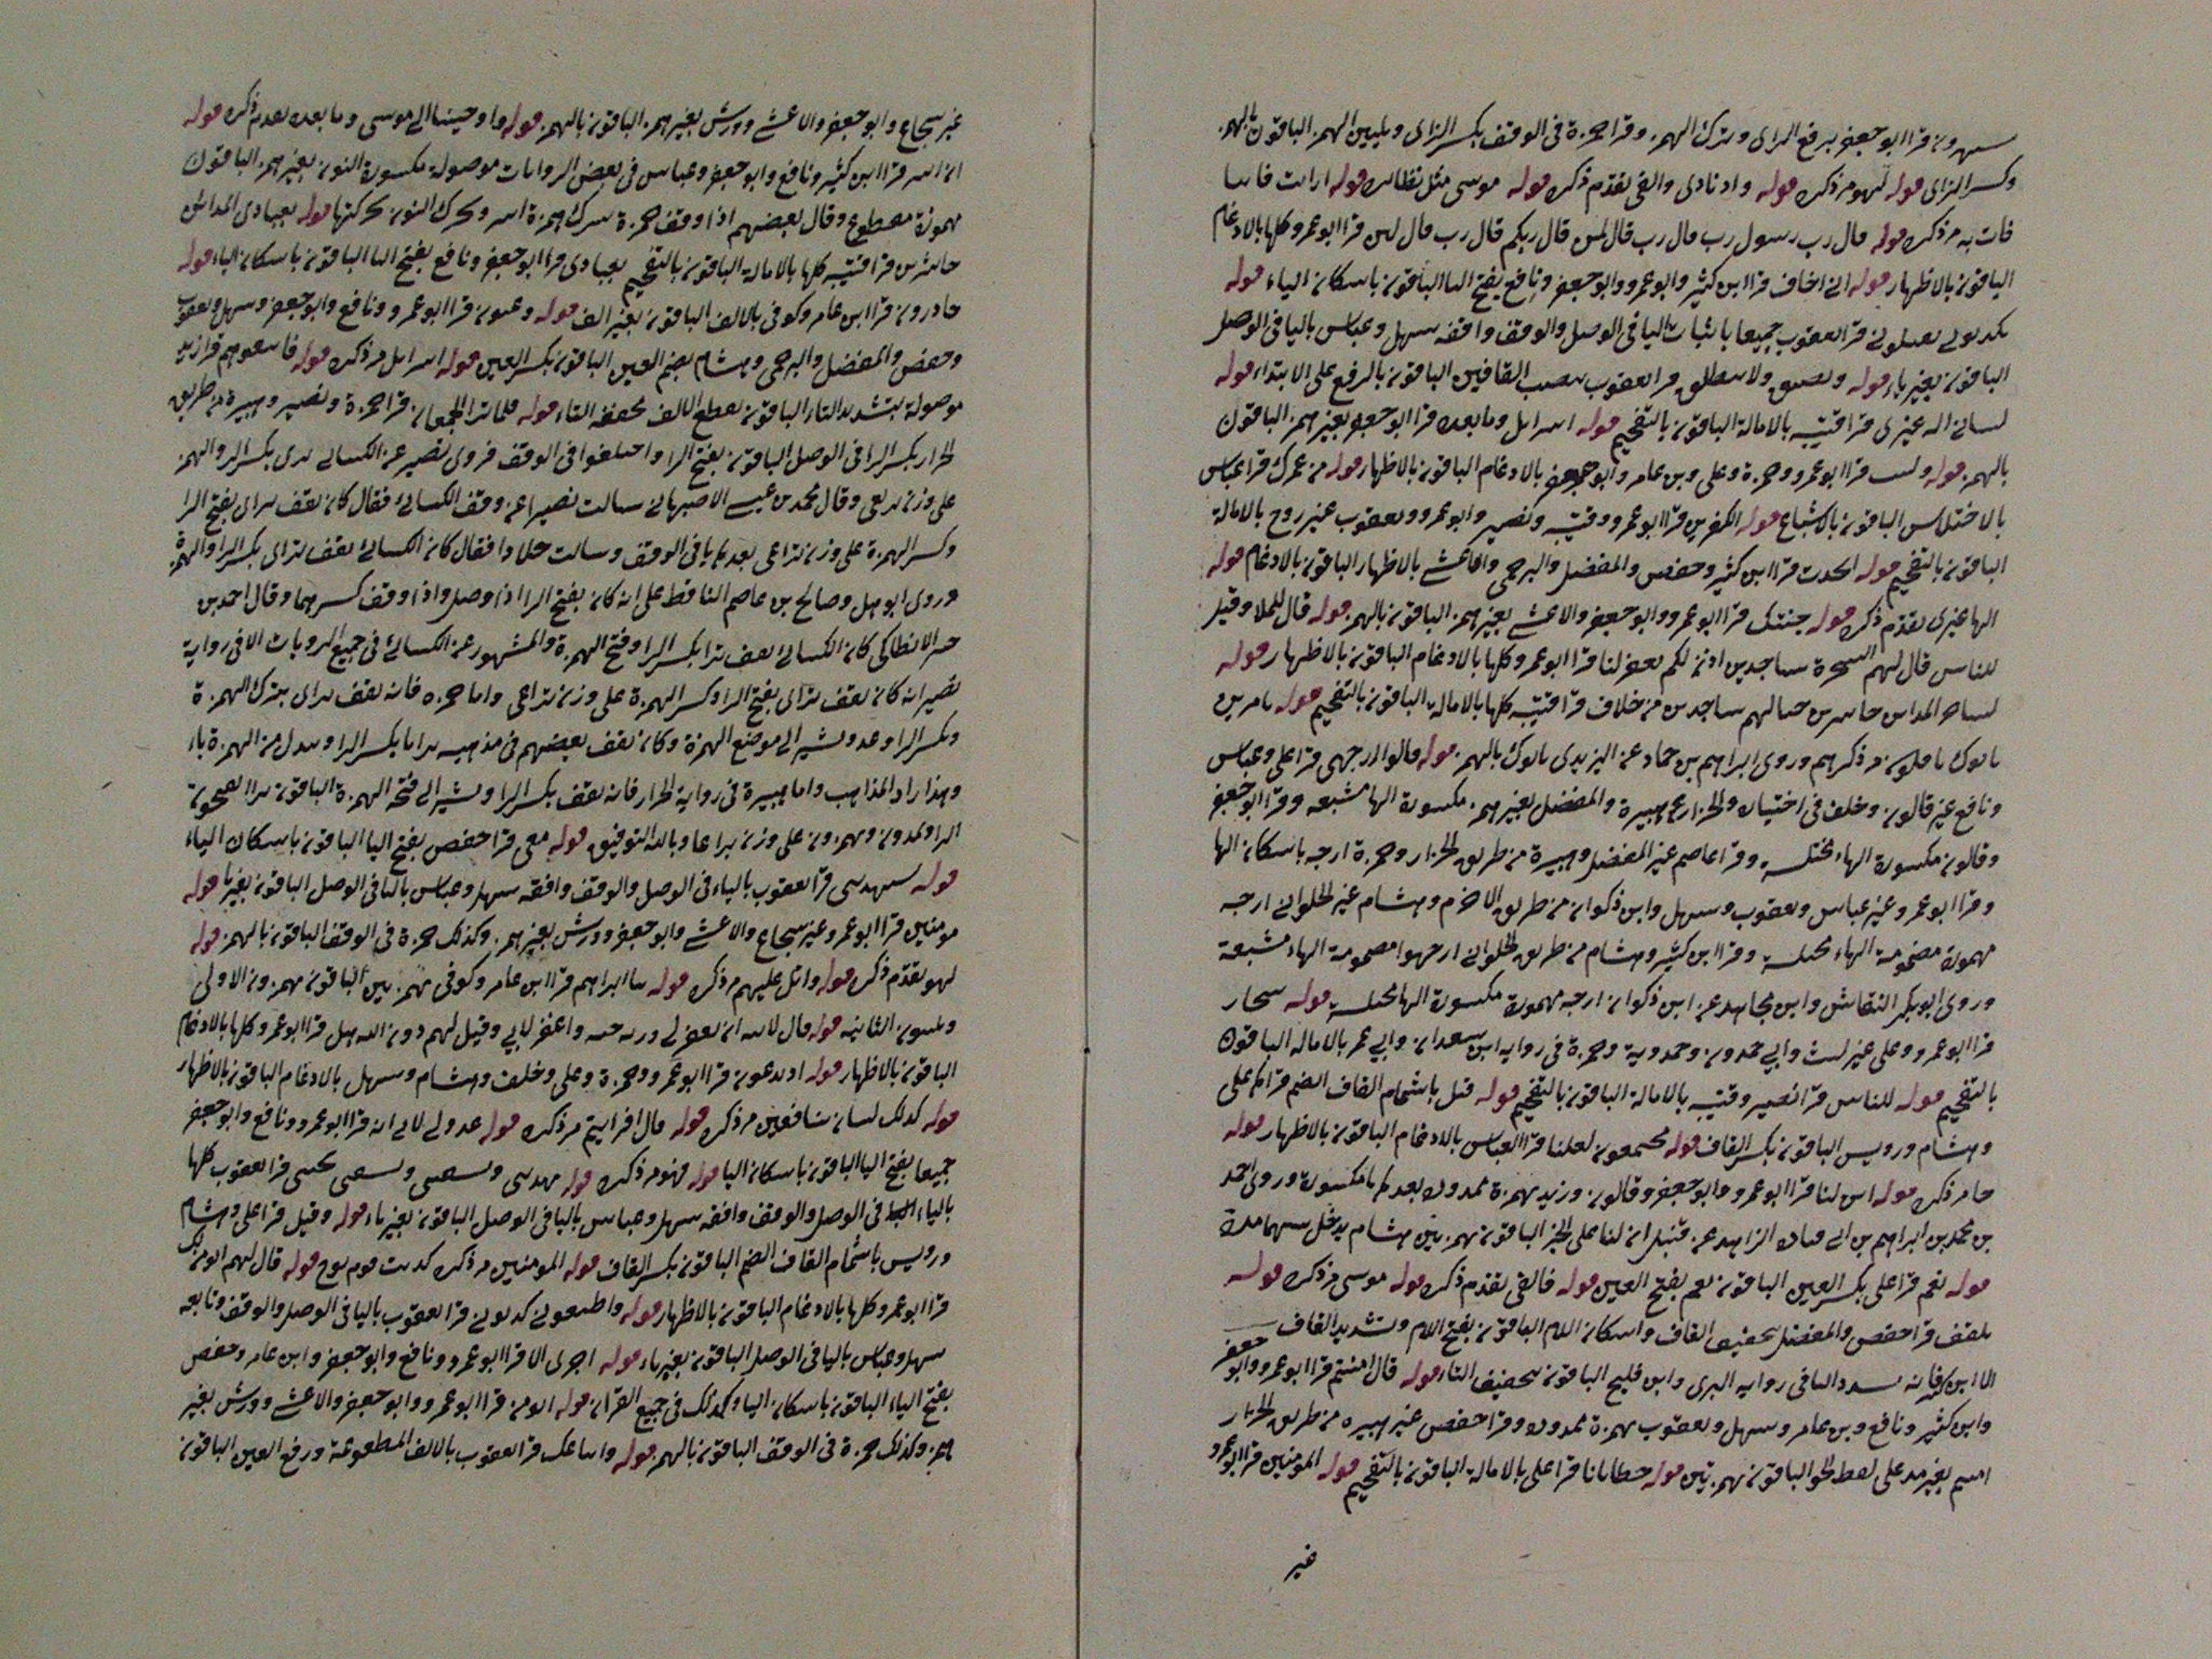 قرا ابو جعفر برفع الزاى وبترك الهمز وقرا حمزة فى الوقف بكسر الزاى ويليين الهمز الباقون بالهمز
وكسر الزاى قوله لهو مر ذكره قوله واد نادى والقى تقدم ذكره قوله موسى مثل نظائره قوله ارايت
فات به مر ذكره قوله قال رب رسول رب قال رب قال لمن قال ربكم قال رب قال لئن قرا ابو عمرو كلها بالادغام
الباقون بالاظهار قوله انى اخاف قرا ابن كثير وابو عمرو وابو جعفر ونافع بفتح اليا الباقون باسكان الياء قوله
يكذبونى يقتلونى قرا يعقوب جميعا باثبات اليا فى الوصل والوقف وافقه سهل وعباس باليا فى الوصل
الباقون بغير ياء قوله ويضيق ولا ينطلق قرا يعقوب بنصب القافين الباقون بالرفع على الابتداء قوله
الها غيرى قرا قتيبه بالامالة الباقون بالتفخيم قوله اسرايل وما بعده قرا ابو جعفر بغير همز الباقون
بالهمز قوله ولبثت قرا ابو عمرو وحمزة وعلى وبن عامر وابو جعفر بالادغام الباقون بالاظهار قوله من عمرك قرا عباس
بالاختلاس الباقون بالاشباع قوله الكفرين قرا ابو عمرو وقتيبه ونصير وابو عمرو ويعقوب غير روح بالامالة
الباقون بالتفخيم قوله اتخذت قرا ابن كثير وحفص والمفضل والبرجمى والاعشى بالاظهار الباقون بالادغام قوله
الها غيرى تقدم ذكره قوله جئتك قرا ابو عمرو وابو جعفر والاعشى بغير همز الباقون بالهمز قوله قال للملا وقيل
للناس قال لهم السحرة ساجدين اذن لكم يغفر لنا قرا ابو عمرو كلها بالادغام الباقون بالاظهار قوله
حاشرين حبالهم ساجدين من خلاف قرا قتيبه كلها بالامالة الباقون بالتفخيم قوله تامرون
ياتوك يافكون مر ذكرهم وروى ابراهيم بن حماد عن اليزيدى ياتوك بالهمز قوله قالوا ارجه قرا على وعباس
ونافع غير قالون وخلف فى اختياره والخزاز عن هبيرة والمفضل بغير همز مكسورة الها مشبعه وقرا ابو جعفر
وقالون مكسورة الهاء مختلسه وقرا عاصم غير المفضل وهبيرة من طريق الخزاز وحمزة ارجه باسكان الها
وقرا ابو عمرو غير عباس ويعقوب وسهل وابن ذكوان من طريق الاخرم وهشام غير الحلوانى ارجه
مهموزة مضمومة الهاء مختلسه وقرا ابن كثير وهشام من طريق الحلوانى ارجهوا مضمومة الهاء مشبعة
وروى ابو بكر النقاش وابن مجاهد عن ابن ذكوان ارجه مهموزة مكسورة الها مختلسه قوله سحار
قرا ابو عمرو وعلى غير ليث وابى حمدون وحمدوية وحمزة فى رواية ابن سعدان وابى عمر بالامالة الباقون
بالتفخيم قوله للناس قرا نصير وقتيبه بالامالة الباقون بالتفخيم قوله قيل باشمام القاف الضم قراكم على
وهشام ورويس الباقون بكسر القاف قوله مجتمعون لعلنا قرا العباس بالادغام الباقون بالاظهار قوله
جا مر ذكره قوله اىن لنا قرا ابو عمرو وابو جعفر وقالون وزيد بهمزة ممدودة بعدها يا مكسورة وروى احمد
بن محمد بن ابراهيم بن الزاهد عن قنبل ان لنا على الخبر الباقون بهمزتين هشام يدخل بينهما مدة
قوله نعم قرا على بكسر العين الباقون نعم بفتح العين قوله فالقى تقدم ذكره قوله موسى مر ذكره قوله
تلقف قرا حفص والمفضل بتخفيف القاف واسكان اللام الباقون بفتح اللام وتشديد القاف
الا ابن كثير فانه شدد التا فى رواية البزى وابن فليح الباقون بتخفيف التاء قوله قال امنتم قرا ابو عمرو وابو جعفر
وابن كثير ونافع وبن عامر وسهل ويعقوب بهمزة ممدودة وقرا حفص غير هبيره من طريق الخزاز
امنتم بغير مد على لفظ الخبر الباقون بهمزتين قوله خطايانا قرا على بالامالة الباقون بالتفخيم قوله المومنين قرا ابو عمرو
غير
غير شجاع وابو جعفر والاعشى وورش بغير همز الباقون بالهمز قوله واوحينا الى موسى وما بعده تقدم ذكره قوله
ان اسر قرا ابن كثير ونافع وابو جعفر وعباس فى بعض الروايات موصولة مكسورة النون بغير همز الباقون
مهموزة مقطوع وقال بعضهم اذا وقف حمزة ترك همزة اسر وحرك النون بحركتها قوله بعبادى المداين
حاشرين قرا قتيبه كلها بالامالة الباقون بالتفخيم بعبادى قرا ابو جعفر ونافع بفتح اليا الباقون باسكان الياء قوله
حاذرون قرا ابن عامر وكوفى بالالف الباقون بغير الف قوله وعيون قرا ابو عمرو ونافع وابو جعفر وسهل ويعقوب
وحفص والمفضل والبرجمى وهشام بضم العين الباقون بكسر العين قوله اسرايل مر ذكره قوله فاتبعوهم قرا زيد
موصولة بتشديد التاء الباقون بقطع الالف مخففه التاء قوله فلما ترا الجمعان قرا حمزة ونصير وهبيرة من طريق
الخزاز بكسر الرا فى الوصل الباقون بفتح الرا واختلفوا فى الوقف فروى نصير عن الكسائى ترى بكسر الرا والهمز
على وزن تدعى وقال محمد بن عيسى الاصبهانى سالت نصيرا عن وقف الكسائى فقال كان يقف تراى بفتح الرا
وكسر الهمزة على وزن تداعى بعدها يا فى الوقف وسالت خلادا فقال كان الكسائى يقف تراى بكسر الرا والهمزة
وروى ابو سهل وصالح بن عاصم الناقط على انه كان بفتح الرا اذا وصل واذا وقف كسرهما وقال احمد بن
الانطاكى كان الكسائى يقف ترا بكسر الرا وفتح الهمزة والمشهور عن الكسائى فى جميع الروايات الا فى رواية
نصير انه كان يقف تراى بفتح الرا وكسر الهمزة على وزن تداعى واما حمزه فانه يقف تراى بترك الهمزة
وبكسر الرا ومد ويشير الى موضع الهمزة وكان يقف بعضهم فى مذهبه ترايا بكسر الرا ويبدل من الهمزة ياء
وهذا اراد المذاهب واما هبيرة فى رواية الخزاز فانه يقف بكسر الرا ويشير الى فتحة الهمزة الباقون ترا يفتحون
الرا ويمدون ويهمزون على وزن تراعا وبالله التوفيق قوله معى قرا حفص بفتح اليا الباقون باسكان الياء
قوله سيهدينى قرا يعقوب بالياء فى الوصل والوقف وافقه سهل وعباس باليا فى الوصل الباقون بغير يا قوله
مومنين قرا ابو عمرو غير شجاع والاعشى وابو جعفر وورش بغير همز وكذلك حمزة فى الوقف الباقون بالهمز قوله
لهو تقدم ذكره قوله واتل عليهم مر ذكره قوله نبا ابراهيم قرا ابن عامر وكوفى بهمزتين الباقون يهمزون الاولى
ويلينون الثانيه قوله قال لابيه ان يغفر لى ورثه جنه واغفر لابى وقيل لهم دون الله هل قرا ابو عمرو كلها بالادغام
الباقون بالاظهار قوله اذ تدعون قرا ابو عمرو وحمزة وعلى وخلف وهشام وسهل بالادغام الباقون بالاظهار
قوله كذلك مر ذكره قوله قال افرايتم مر ذكره قوله عدو لى لابى انه قرا ابو عمرو ونافع وابو جعفر
جميعا بفتح اليا الباقون باسكان اليا قوله فهو مر ذكره قوله يهدينى ويسقينى ويشفينى يحيينى قرا يعقوب كلها
بالياء فى الوصل والوقف وافقه سهل وعباس باليا فى الوصل الباقون بغير ياء قوله وقيل قرا على وهشام
ورويس باشمام القاف الضم الباقون بكسر القاف قوله المومنين مر ذكره كذبت قوم نوح قوله قال لهم انومن لك
قرا ابو عمرو كلها بالادغام الباقون بالاظهار قوله واطيعونى كذبونى قرا يعقوب باليا فى الوصل والوقف وتابعه
سهل وعباس باليا فى الوصل الباقون بغير ياء قوله اجرى الا قرا ابو عمرو ونافع وابو جعفر وابن عامر وحفص
بفتح الياء الباقون باسكان اليا وكذلك فى جميع القران قوله انومن قرا ابو عمرو وابو جعفر والاعشى وورش بغير
همز وكذلك حمزة فى الوقف الباقون بالهمز قوله واتباعك قرا يعقوب بالالف المقطوعة ورفع العين الباقون